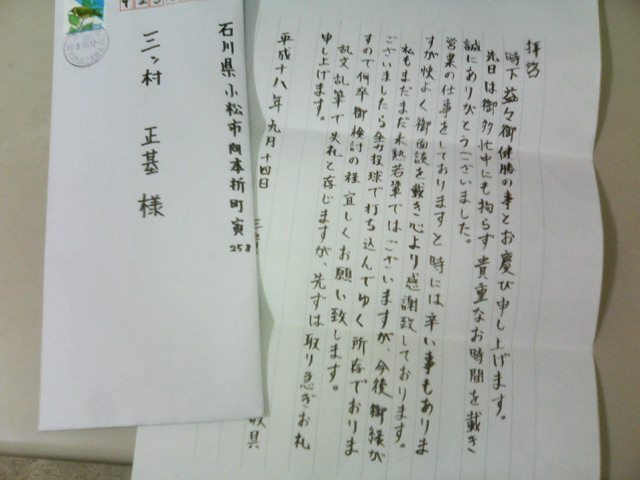 拝啓
時下益々御健勝の事とお慶び申し上げます。
先日は御多忙中にも拘らず貴重なお時間を戴き
誠にありがとうございました。
営業の仕事をしておりますと時には辛い事もありま
すが快よく御面談を戴き心より感謝致しております。
私もまだまだ未熟若輩ではございますが、今後御縁が
ございましたら全力投球で打ち込んでゆく所存でおりま
すので何卒御検討の程宜しくお願い致します。
乱文乱筆で失礼と存じますが、先ずは取り急ぎお礼
申し上げます。
敬具
平成十八年九月十四日
石川県小松市向本折町寅
258
三ッ村 正基 様